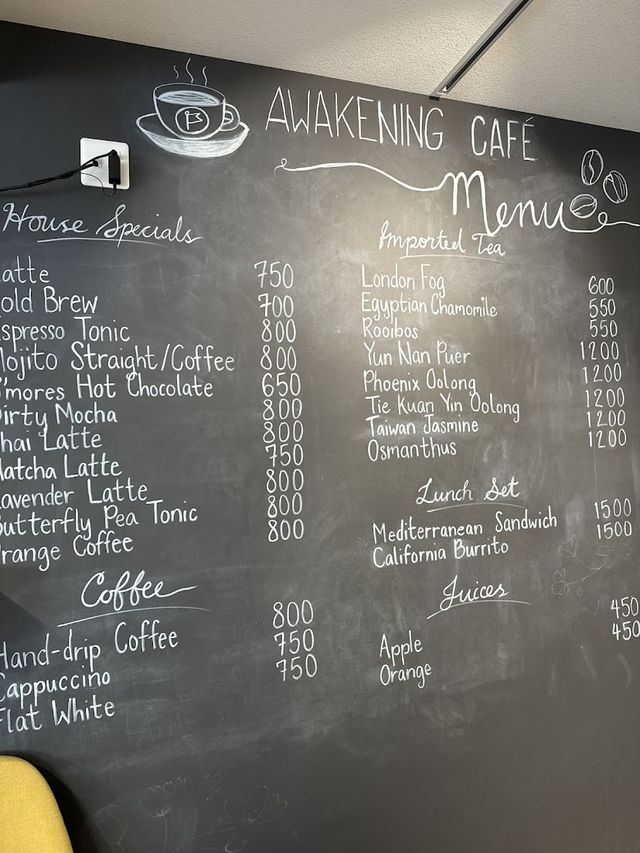 B
AWAKENING CAFÉ
Menu
House Specials
atte 750
old Brew 700
spresso Tonic 800
Mojito Straight/Coffee 800
S'mores Hot Chocolate 650
Dirty Mocha 800
hai Latte 800
Matcha Latte 750
Lavender Latte 800
Butterfly Pea Tonic 800
range Coffee 800
Coffee
Hand-drip Coffee 800
Cappuccino 750
Flat White 750
Imported Tea
London Fog 600
Egyptian Chamomile 550
Rooibos 550
Yun Nan Puer 1200
Phoenix Oolong 1200
Tie Kuan Yin Oolong 1200
Taiwan Jasmine 1200
Osmanthus 1200
Lunch Set
Mediterranean Sandwich 1500
California Burrito 1500
Juices
Apple 450
Orange 450